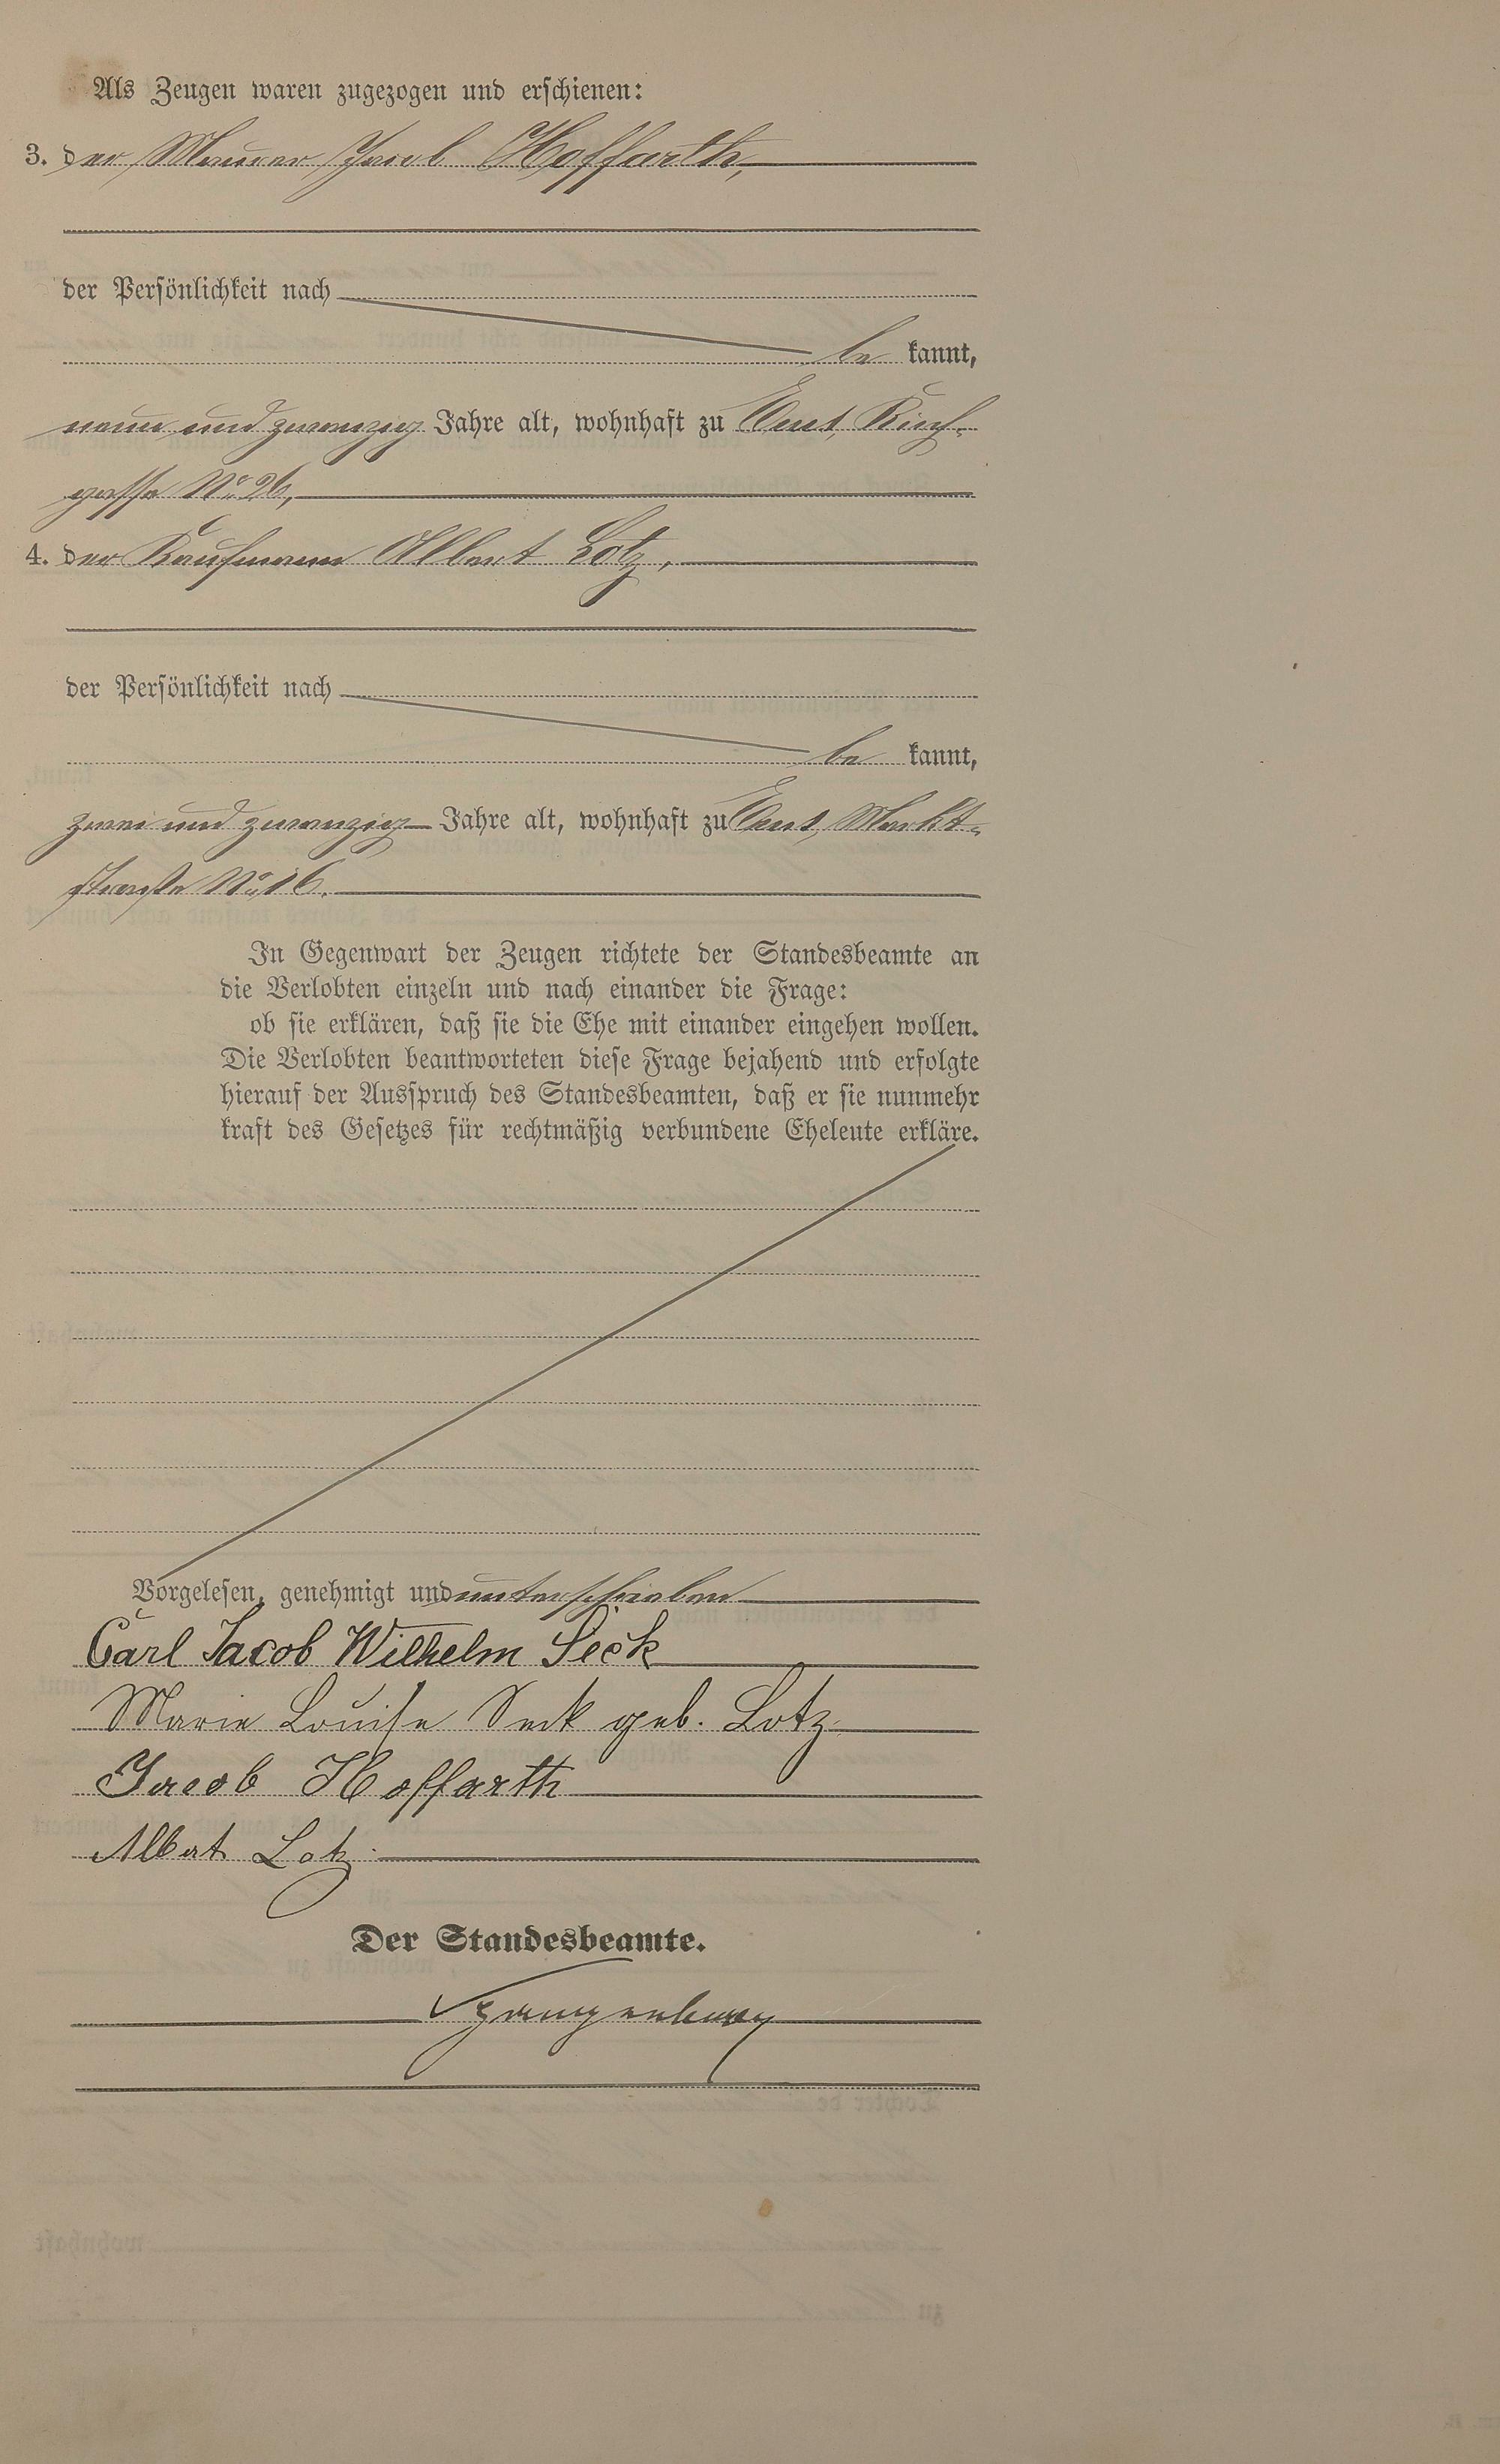 Als Zeugen waren zugezogen und erschienen:
3. der Maurer Jacob Hoffarth,
der Persönlichkeit nach
be kannt,
neun und zwanzig Jahre alt, wohnhaft zu Ems, Kirch-
gasse No. 26,
4. der Kaufmann Albert Lotz,
der Persönlichkeit nach
be kannt,
zwei und zwanzig Jahre alt, wohnhaft zu Ems, Markt-
straße No. 16.
In Gegenwart der Zeugen richtete der Standesbeamte an
die Verlobten einzeln und nach einander die Frage:
ob sie erklären, daß sie die Ehe mit einander eingehen wollen.
Die Verlobten beantworteten diese Frage bejahend und erfolgte
hierauf der Ausspruch des Standesbeamten, daß er sie nunmehr
kraft des Gesetzes für rechtmäßig verbundene Eheleute erkläre.
Vorgelesen, genehmigt und unterschrieben
Carl Jacob Wilhelm Seck
Marie Louise Seck geb. Lotz
Jacob Hoffarth
Albert Lotz
Der Standesbeamte.
Spangenberg